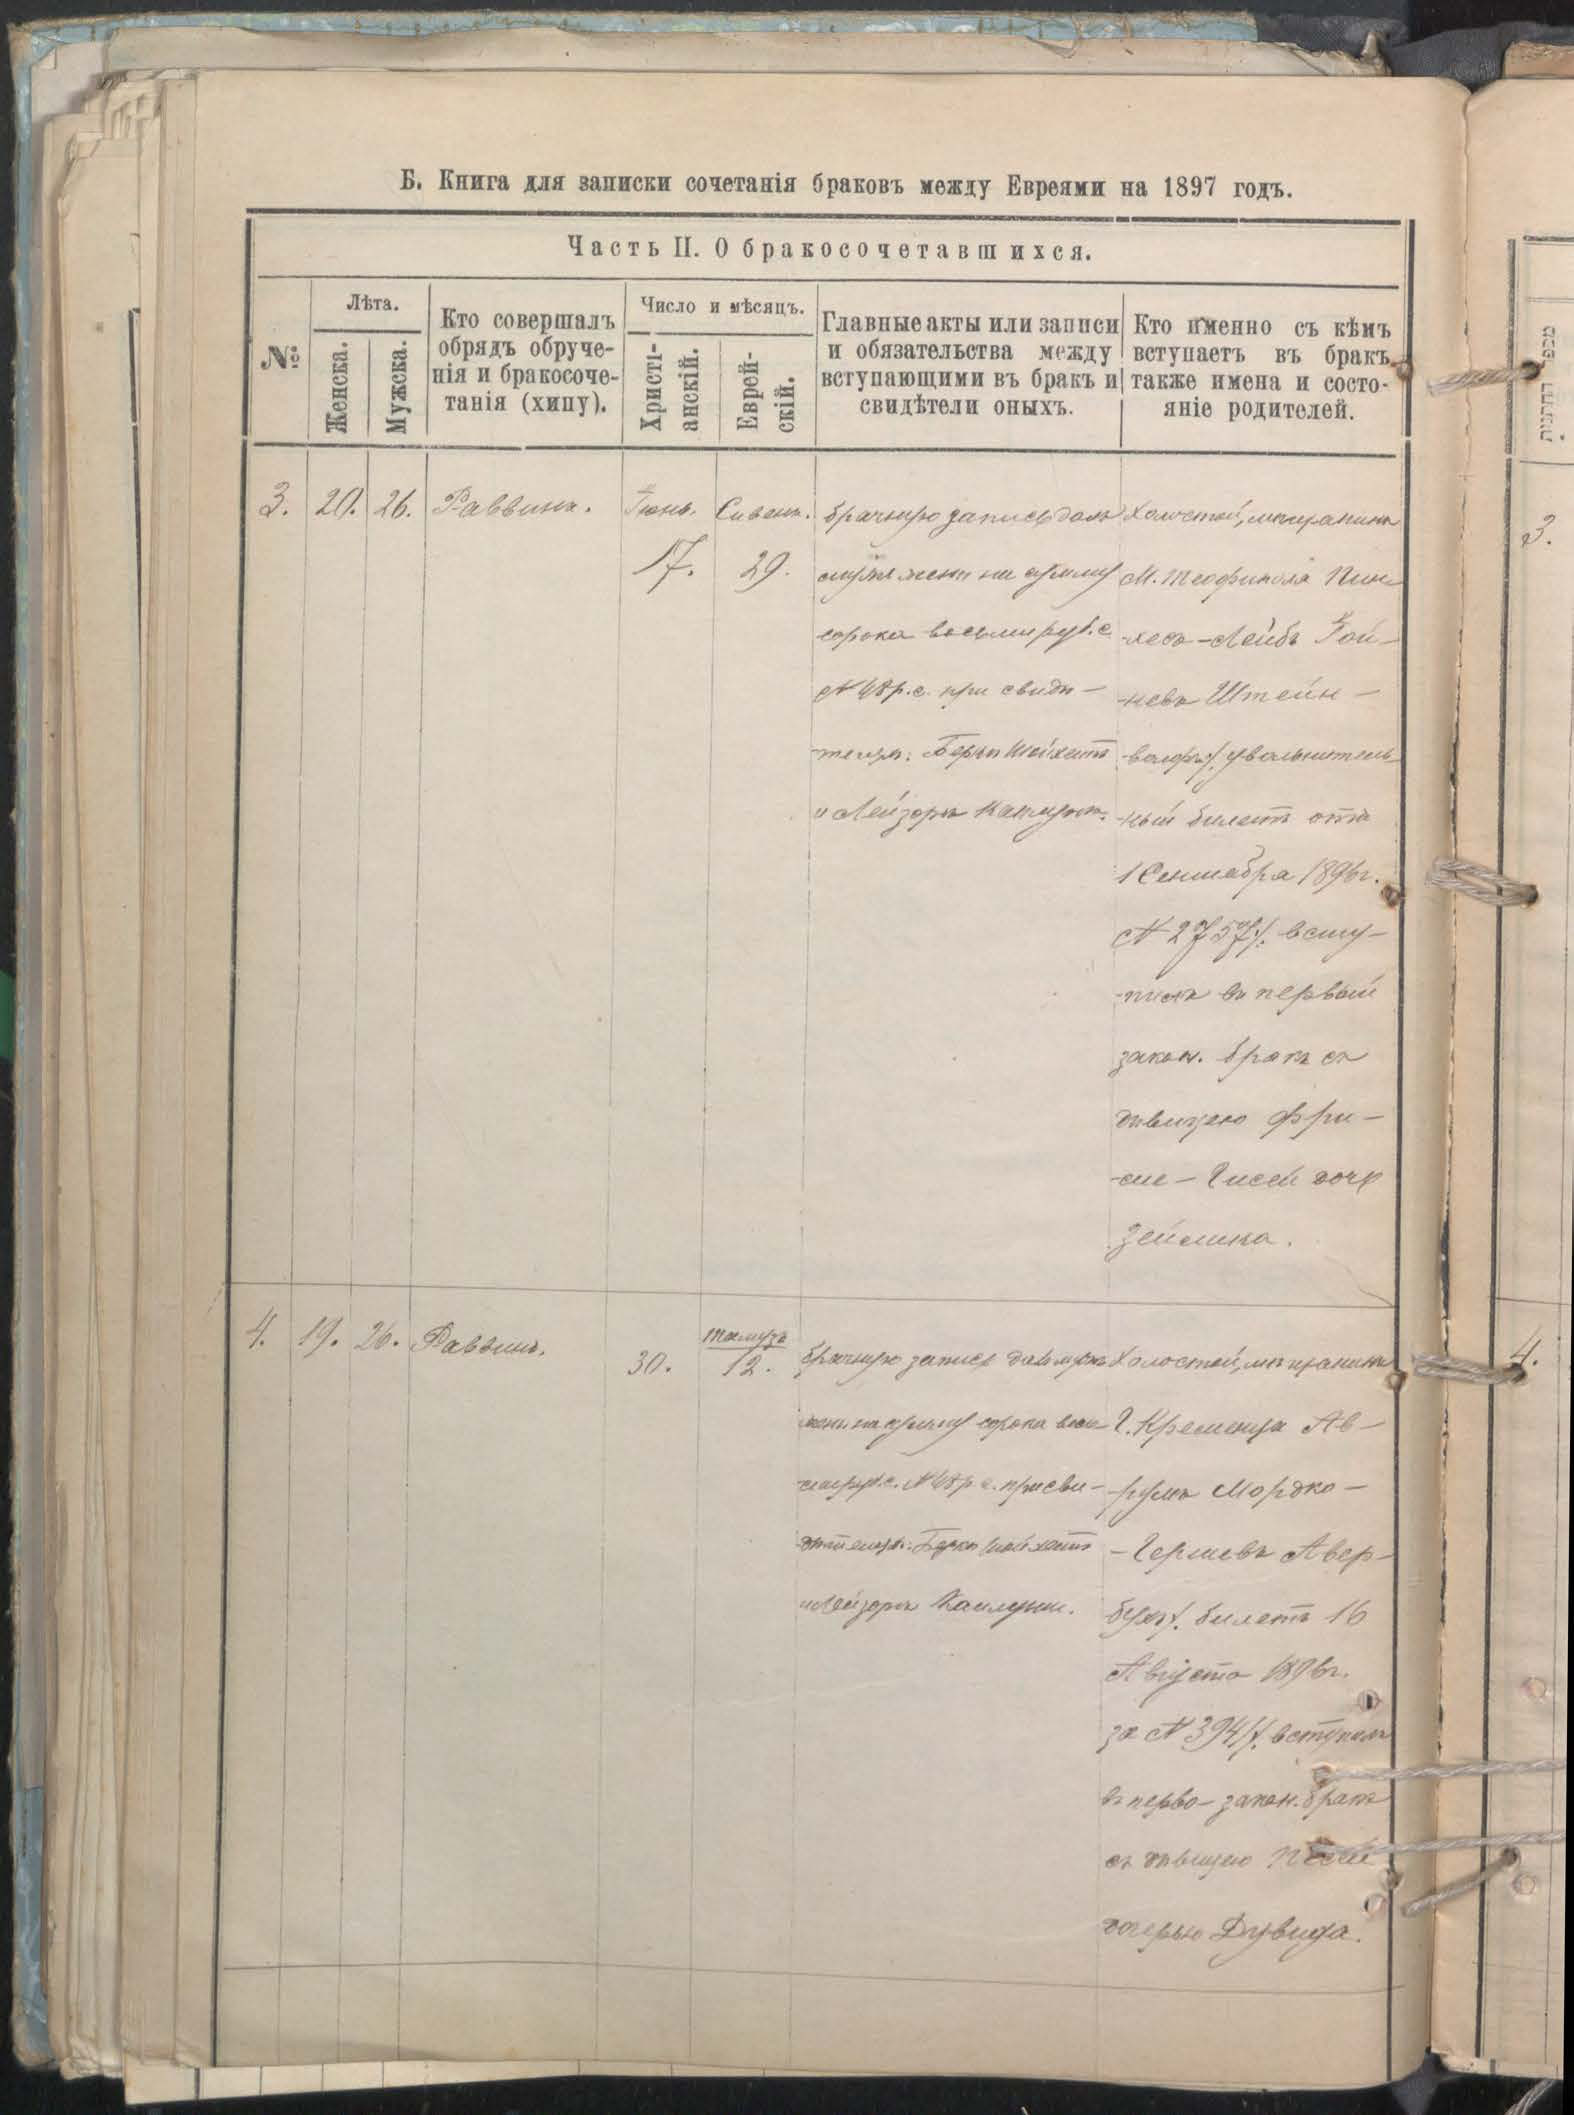 Б. Книга для записки сочетанія браковъ между Евреями на 1897 годъ.
Часть II. О бракосочетавшихся.
№
Лѣта.
Женска.
Мужска.
Кто совершалъ
обрядъ обруче-
нія и бракосоче-
танія (хипу).
Число и мѣсяцъ.
Христі-
анскій.
Еврей-
скій.
Главные акты или записи
и обязательства между
вступающими въ бракъ и
свидѣтели оныхъ.
Кто именно съ кѣмъ
вступаетъ въ бракъ
также имена и состо-
яніе родителей.
3. 20. 26. Раввинъ. Іюнь. 17. Сивенъ. 29.
брачную запись далъ
мужъ женѣ на сумму
сорока восьми руб. с.
№ 48 р. с. при свидѣ-
теляхъ: Берко Шойхетъ
и Лейзоръ
Холостой, мѣщанинъ
М. Теофиполя Пин-
-хесъ-Лейбъ Гой-
-невъ Штейн-
-вольфъ /. увольнитель-
-ный билетъ отъ
1 Сентября 1896г.
№ 2757/. всту-
-пилъ въ первый
закон. бракъ съ
дѣвицею Фри-
-ме-Гисей дочер
Зейлика.
4. 19. 26. Раввинъ. 30. тамузъ 12.
брачную запись далъ мужъ
женѣ на сумму сорока вось-
-ми руб. с. № 48 р. с. при сви-
дѣтеляхъ: Берко Шойхетъ
и Лейзоръ
Холостой, мѣщанинъ
Г. Кременца Ав-
-румъ Мордко-
-Гершевъ Авер-
бухъ /. билетъ 16
Августа 1896г.
за № 394/. вступилъ
въ перво-закон. бракъ
съ дѣвицею Песей
дочерью Дувида.
3.
4.